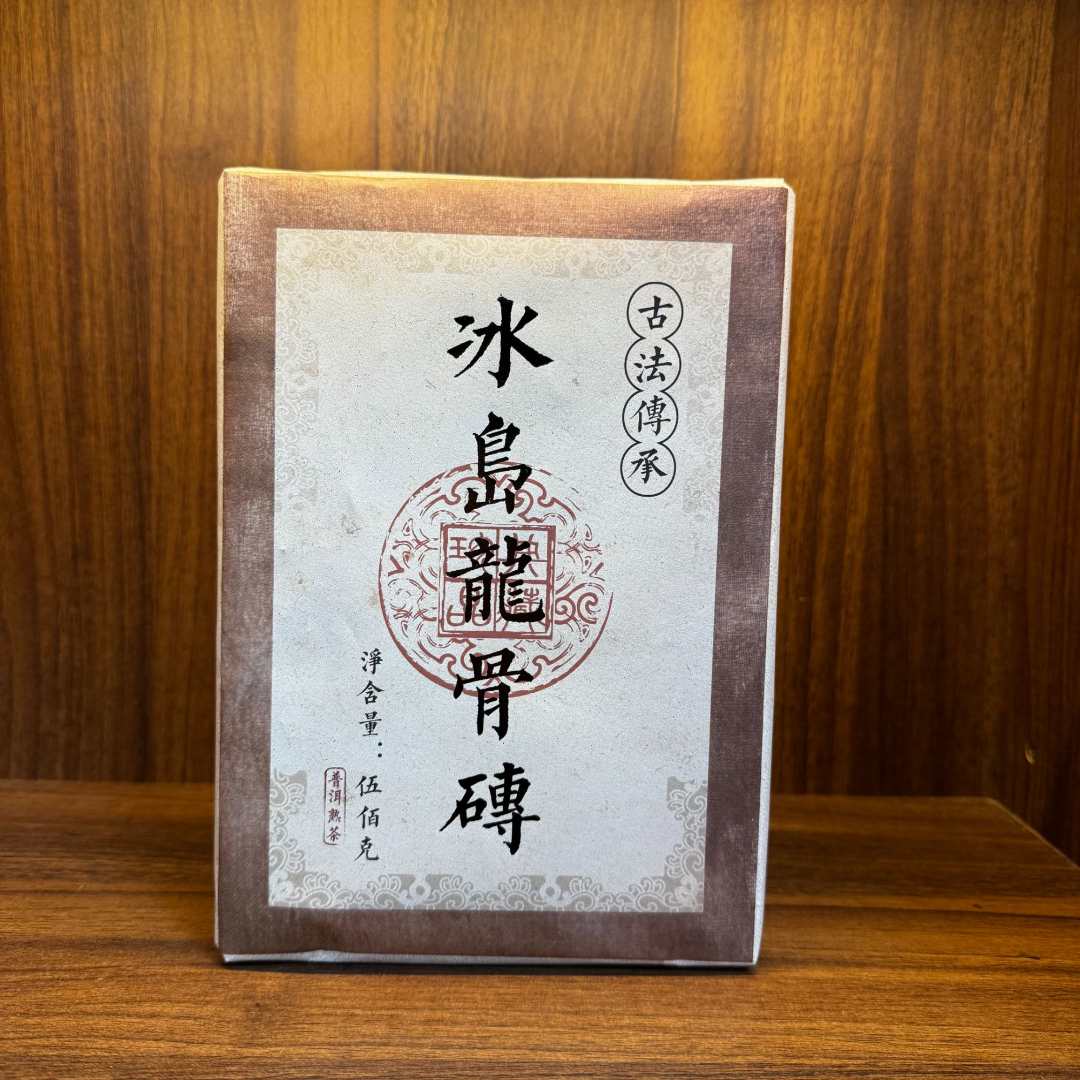 古法傳承
冰島龍骨磚
淨含量：伍佰克
普洱熟茶